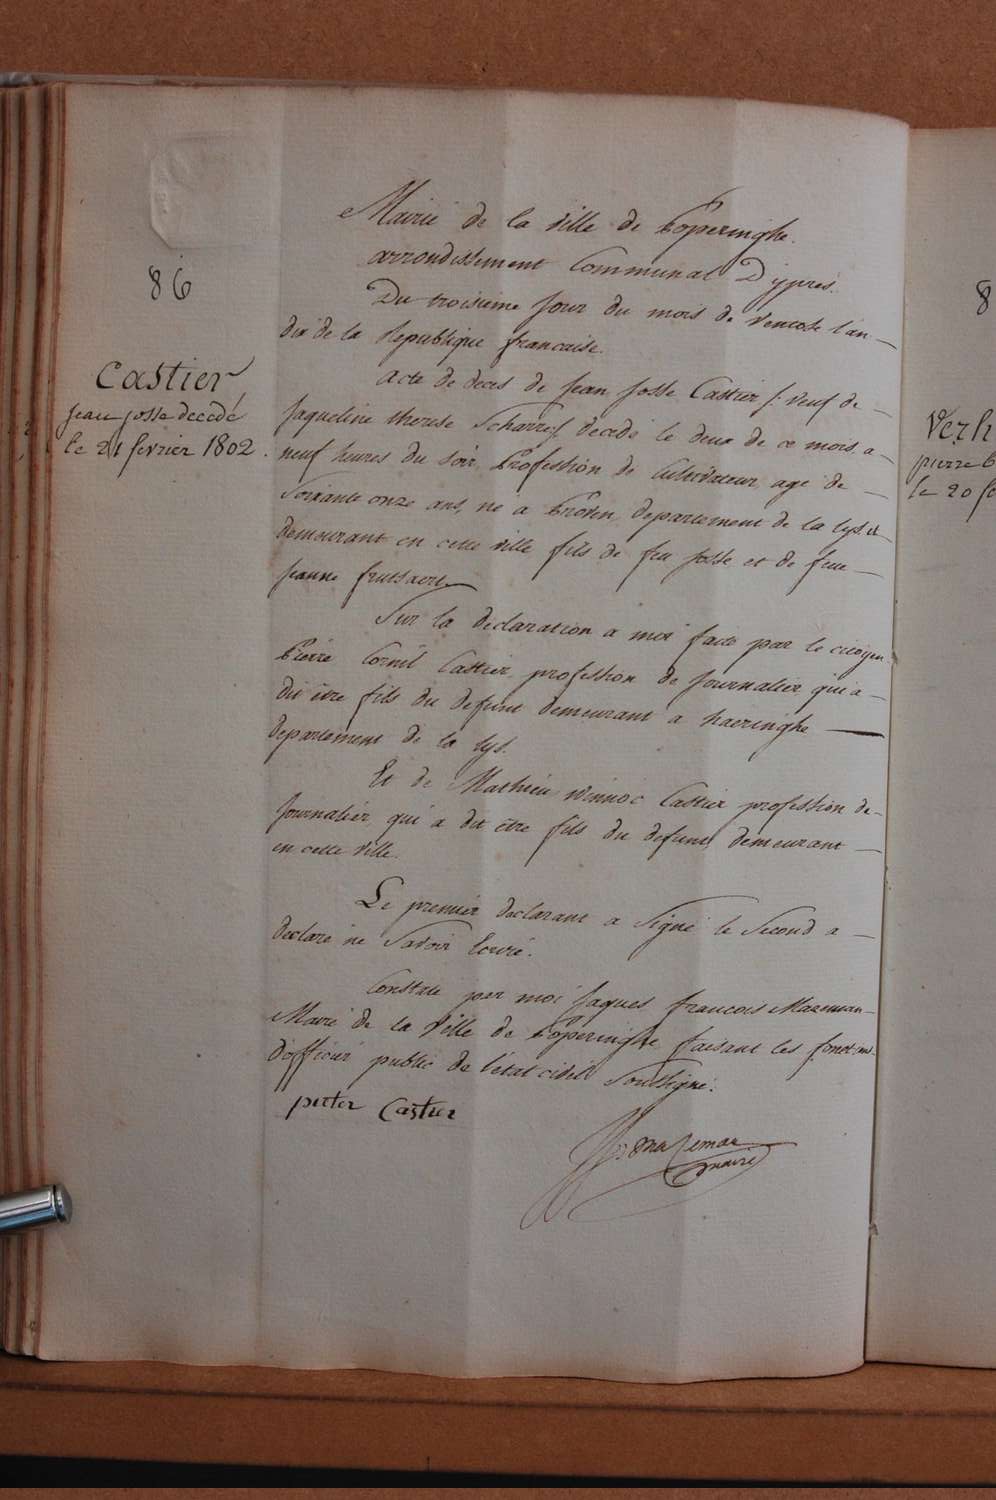 86
Castier
jean josse decedé
le 21 fevrier 1802.
Mairie de la ville de Poperinghe.
arrondissement Communal D'ypres.
Du troisieme jour du mois de Ventose l'an
dix de la Republique francaise.
Acte de deces de Jean Josse Castier /: veuf de
Jaqueline therese Scharre :/ decedé le deux de ce mois a
neuf heures du soir, Profession de Cultivateur, agé de
Soixante onze ans, né a Proven, departement de la lys et
demeurant en cette ville fils de feu Josse et de feue
jeanne frutsaert.
Sur la declaration a moi faite par le citoyen
Pierre Cornil Castier, profession de Journalier, qui a
dit être fils du defunt demeurant a haeringhe
departement de la lys.
Et de Mathieu Winnoc Castier profession de
Journalier, qui a dit être fils du defunt, demeurant
en cette ville.
Le premier declarant a Signé le Second a
declaré ne Savoir Ecrire.
Constaté par moi Jaques francois Mazeman
Maire de la Ville de Poperinghe faisant les fonctions
d'officier public de l'état civil Soussigné.
pieter Castier
Mazeman
maire
8
Verh
pierre
le 20